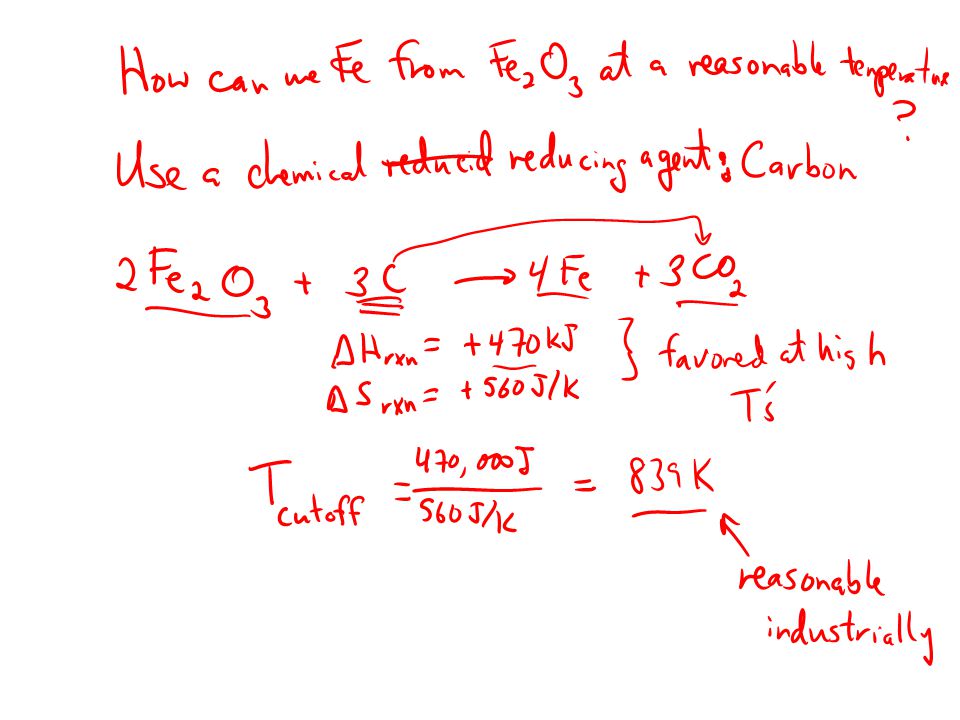 How can we Fe from Fe₂O₃ at a reasonable temperature
?
Use a chemical reducid reducing agent: Carbon
2 Fe₂O₃ + 3C → 4 Fe + 3CO₂
ΔHrxn = +470 kJ
ΔSrxn = +560 J/K
} favored at high
T's
Tcutoff = 470,000J / 560 J/K = 839 K
reasonable
industrially